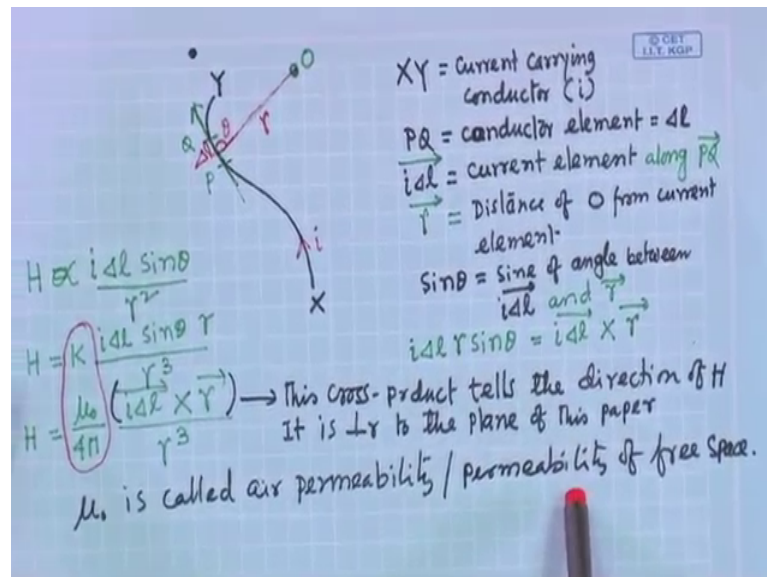 © CET
I.I.T. KGP
Y
O
Q
θ
r
Δl
P
i
X
XY = Current Carrying
conductor (i)
PQ = conductor element = Δl
iΔl = current element along PQ
r = Distance of O from current
element.
Sinθ = sine of angle between
iΔl and r
iΔl r sinθ = iΔl × r
H ∝ iΔl sinθ / r²
H = K iΔl sinθ r / r³
H = μ₀/4π (iΔl × r) / r³ → This Cross-prduct tells the direction of H
It is ⊥r to the plane of this paper
μ₀ is called air permeability / permeability of free space.